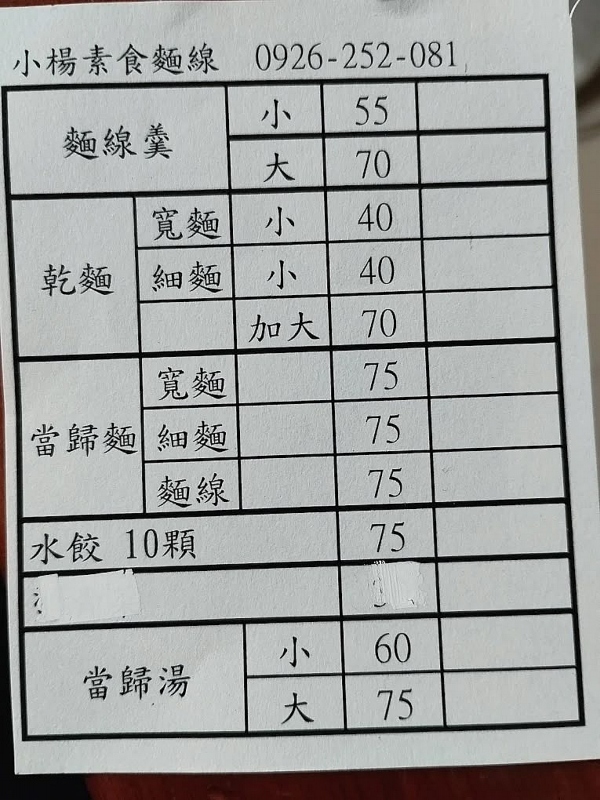 小楊素食麵線 0926-252-081
麵線羹 小 55
大 70
乾麵 寬麵 小 40
細麵 小 40
加大 70
當歸麵 寬麵 75
細麵 75
麵線 75
水餃 10顆 75
當歸湯 小 60
大 75